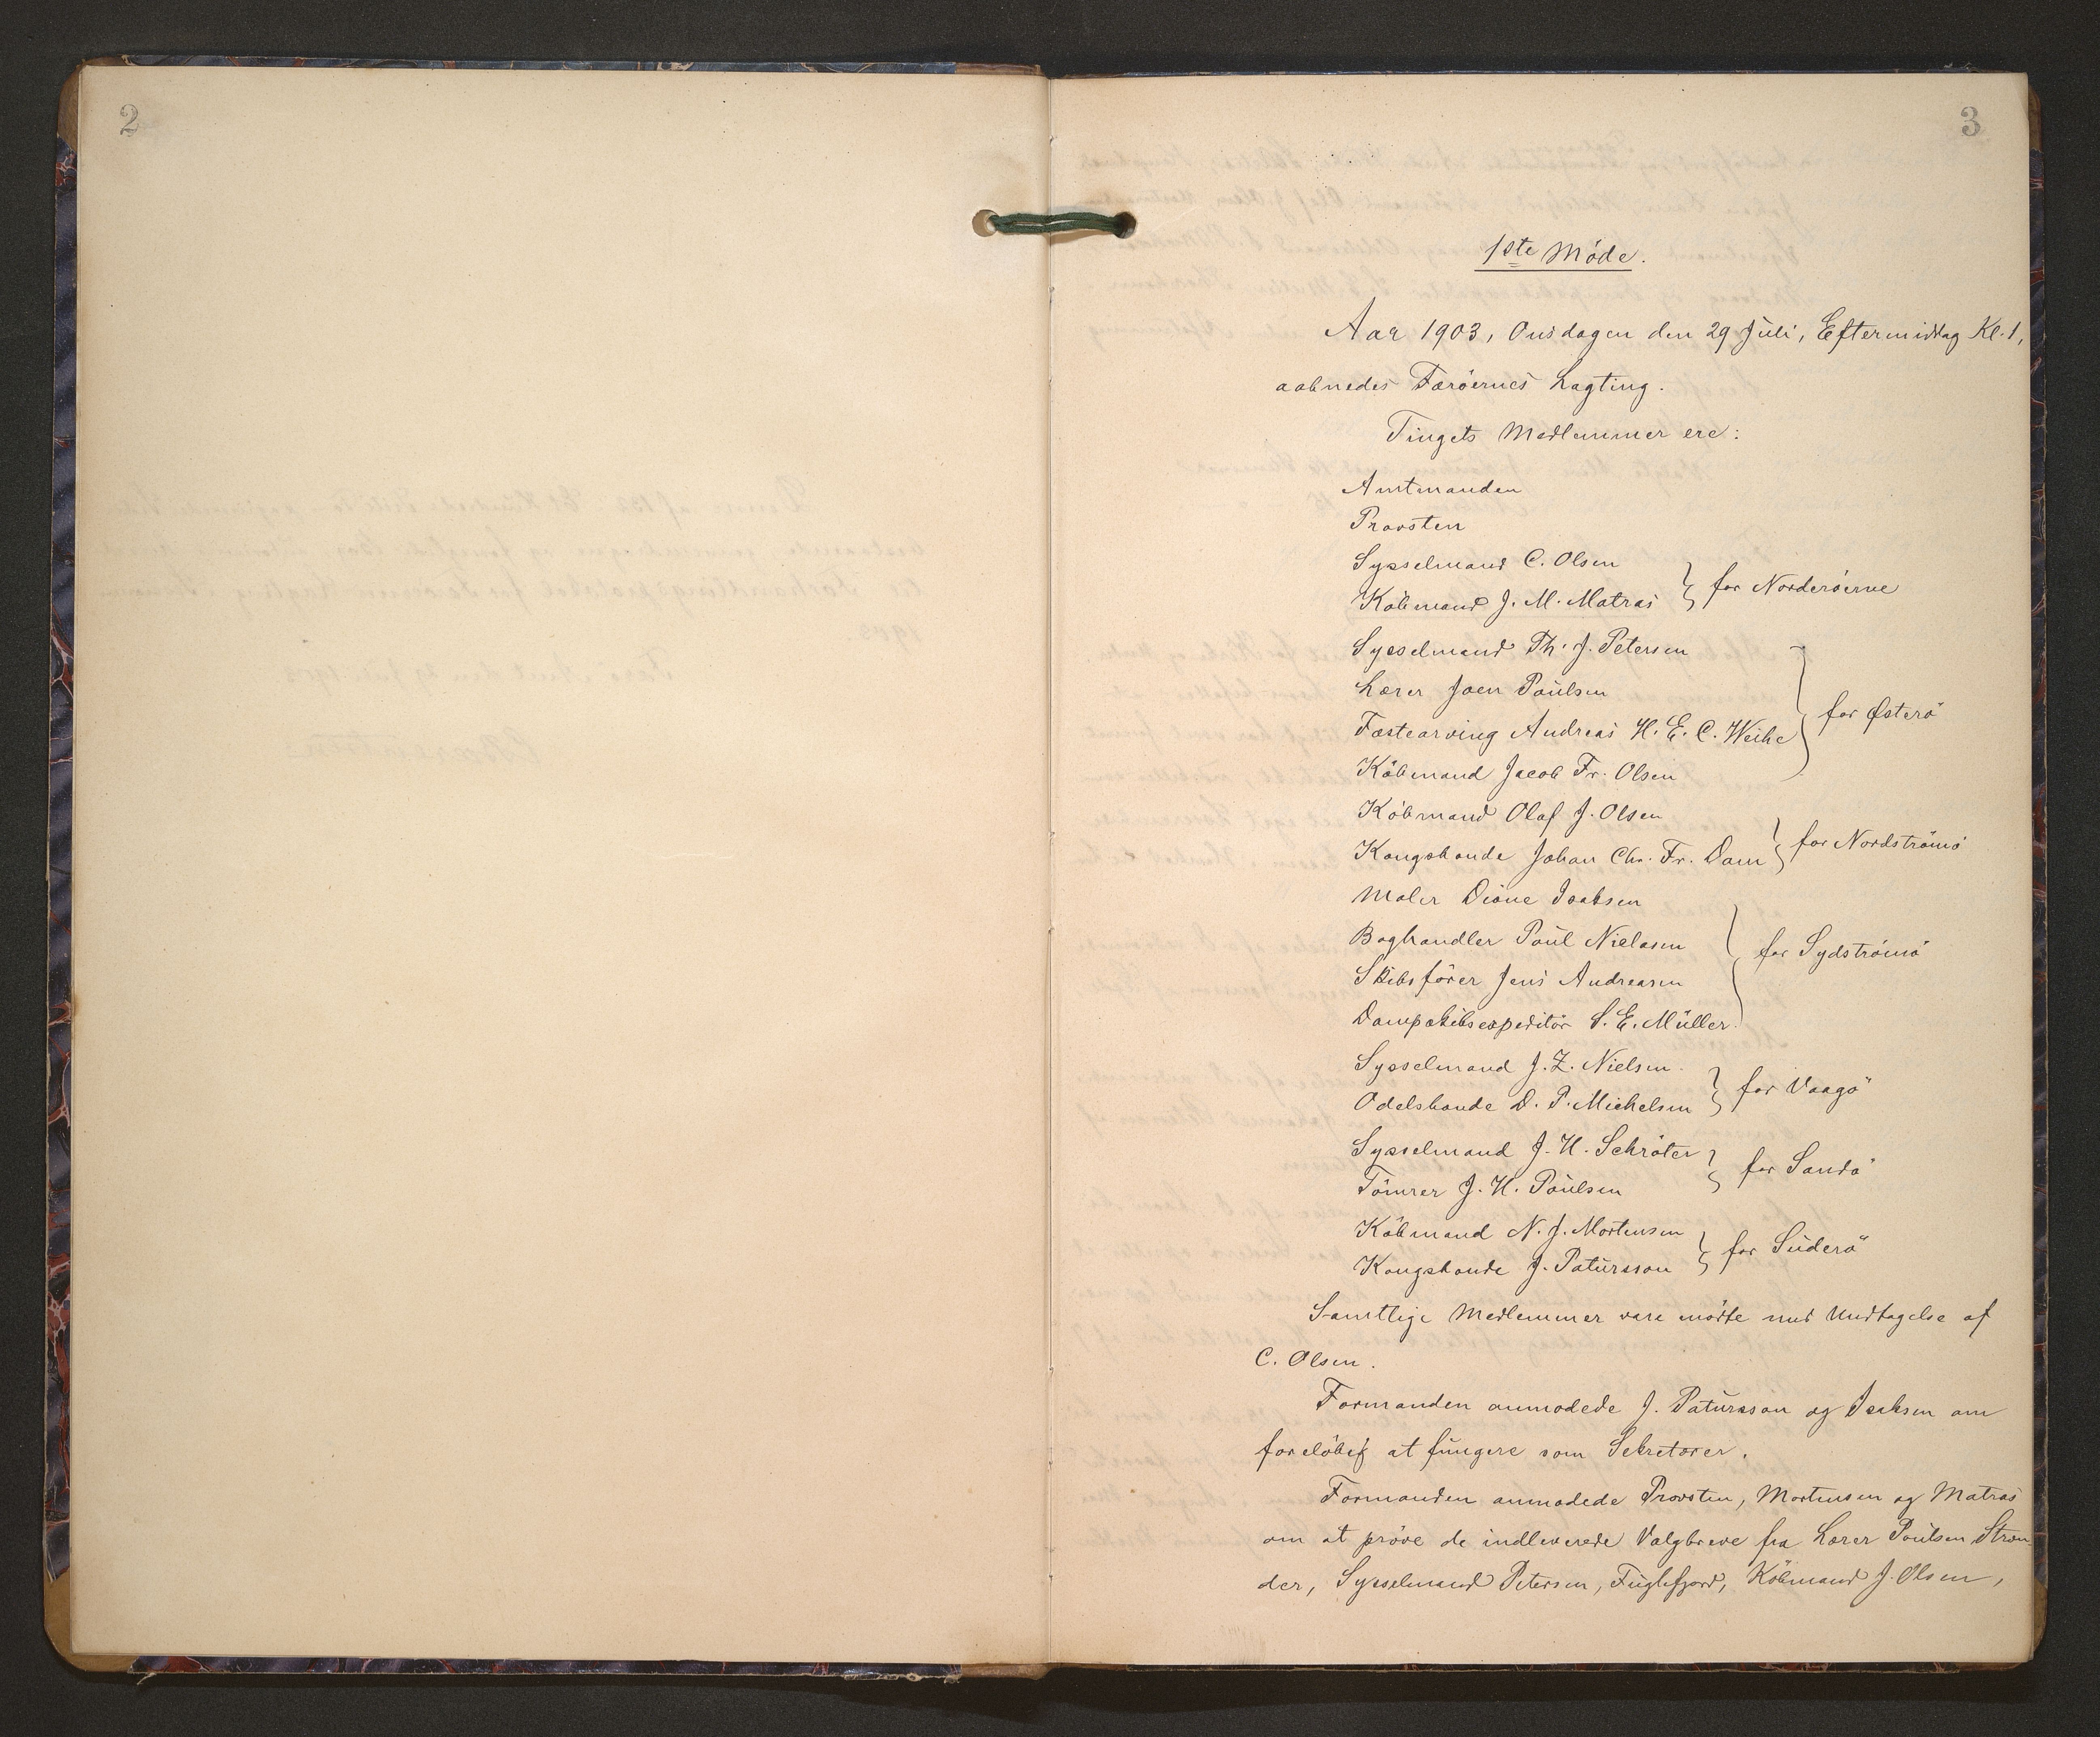 2
3
1ste Möde.
Aar 1903, Onsdagen den 29 Juli, Eftermiddag Kl. 1,
aabnedes Færöernes Lagting.
Tingets Medlemmer ere:
Amtmanden
Provsten
Sysselmand C. Olsen
Köbmand J. M. Matras } for Norderöerne
Sysselmand Th. J. Petersen
Lærer Joen Poulsen
Fæstearving Andreas H. E. C. Weihe } for Österö
Köbmand Jacob Fr. Olsen
Köbmand Olaf J. Olsen
Kongsbonde Johan Chr. Fr. Dam } for Nordströmö
Maler Dione Isaksen
Boghandler Poul Nielsen } for Sydströmö
Skibsförer Jens Andreasen
Dampskibsexpeditör S. E. Müller
Sysselmand J. Z. Nielsen
Odelsbonde D. P. Michelsen } for Vaagö
Sysselmand J. H. Schröter
Tömrer J. H. Poulsen } for Sandö
Köbmand N. J. Mortensen
Kongsbonde J. Patursson } for Suderö
Samtlige Medlemmer vare mödte med Undtagelse af
C. Olsen.
Formanden anmodede J. Patursson og Isaksen om
forelöbig at fungere som Sekretærer.
Formanden anmodede Provsten, Mortensen og Matras
om at pröve de indleverede Valgbreve fra Lærer Poulsen, Stræn-
der, Sysselmand Petersen, Fuglefjord, Köbmand J. Olsen,